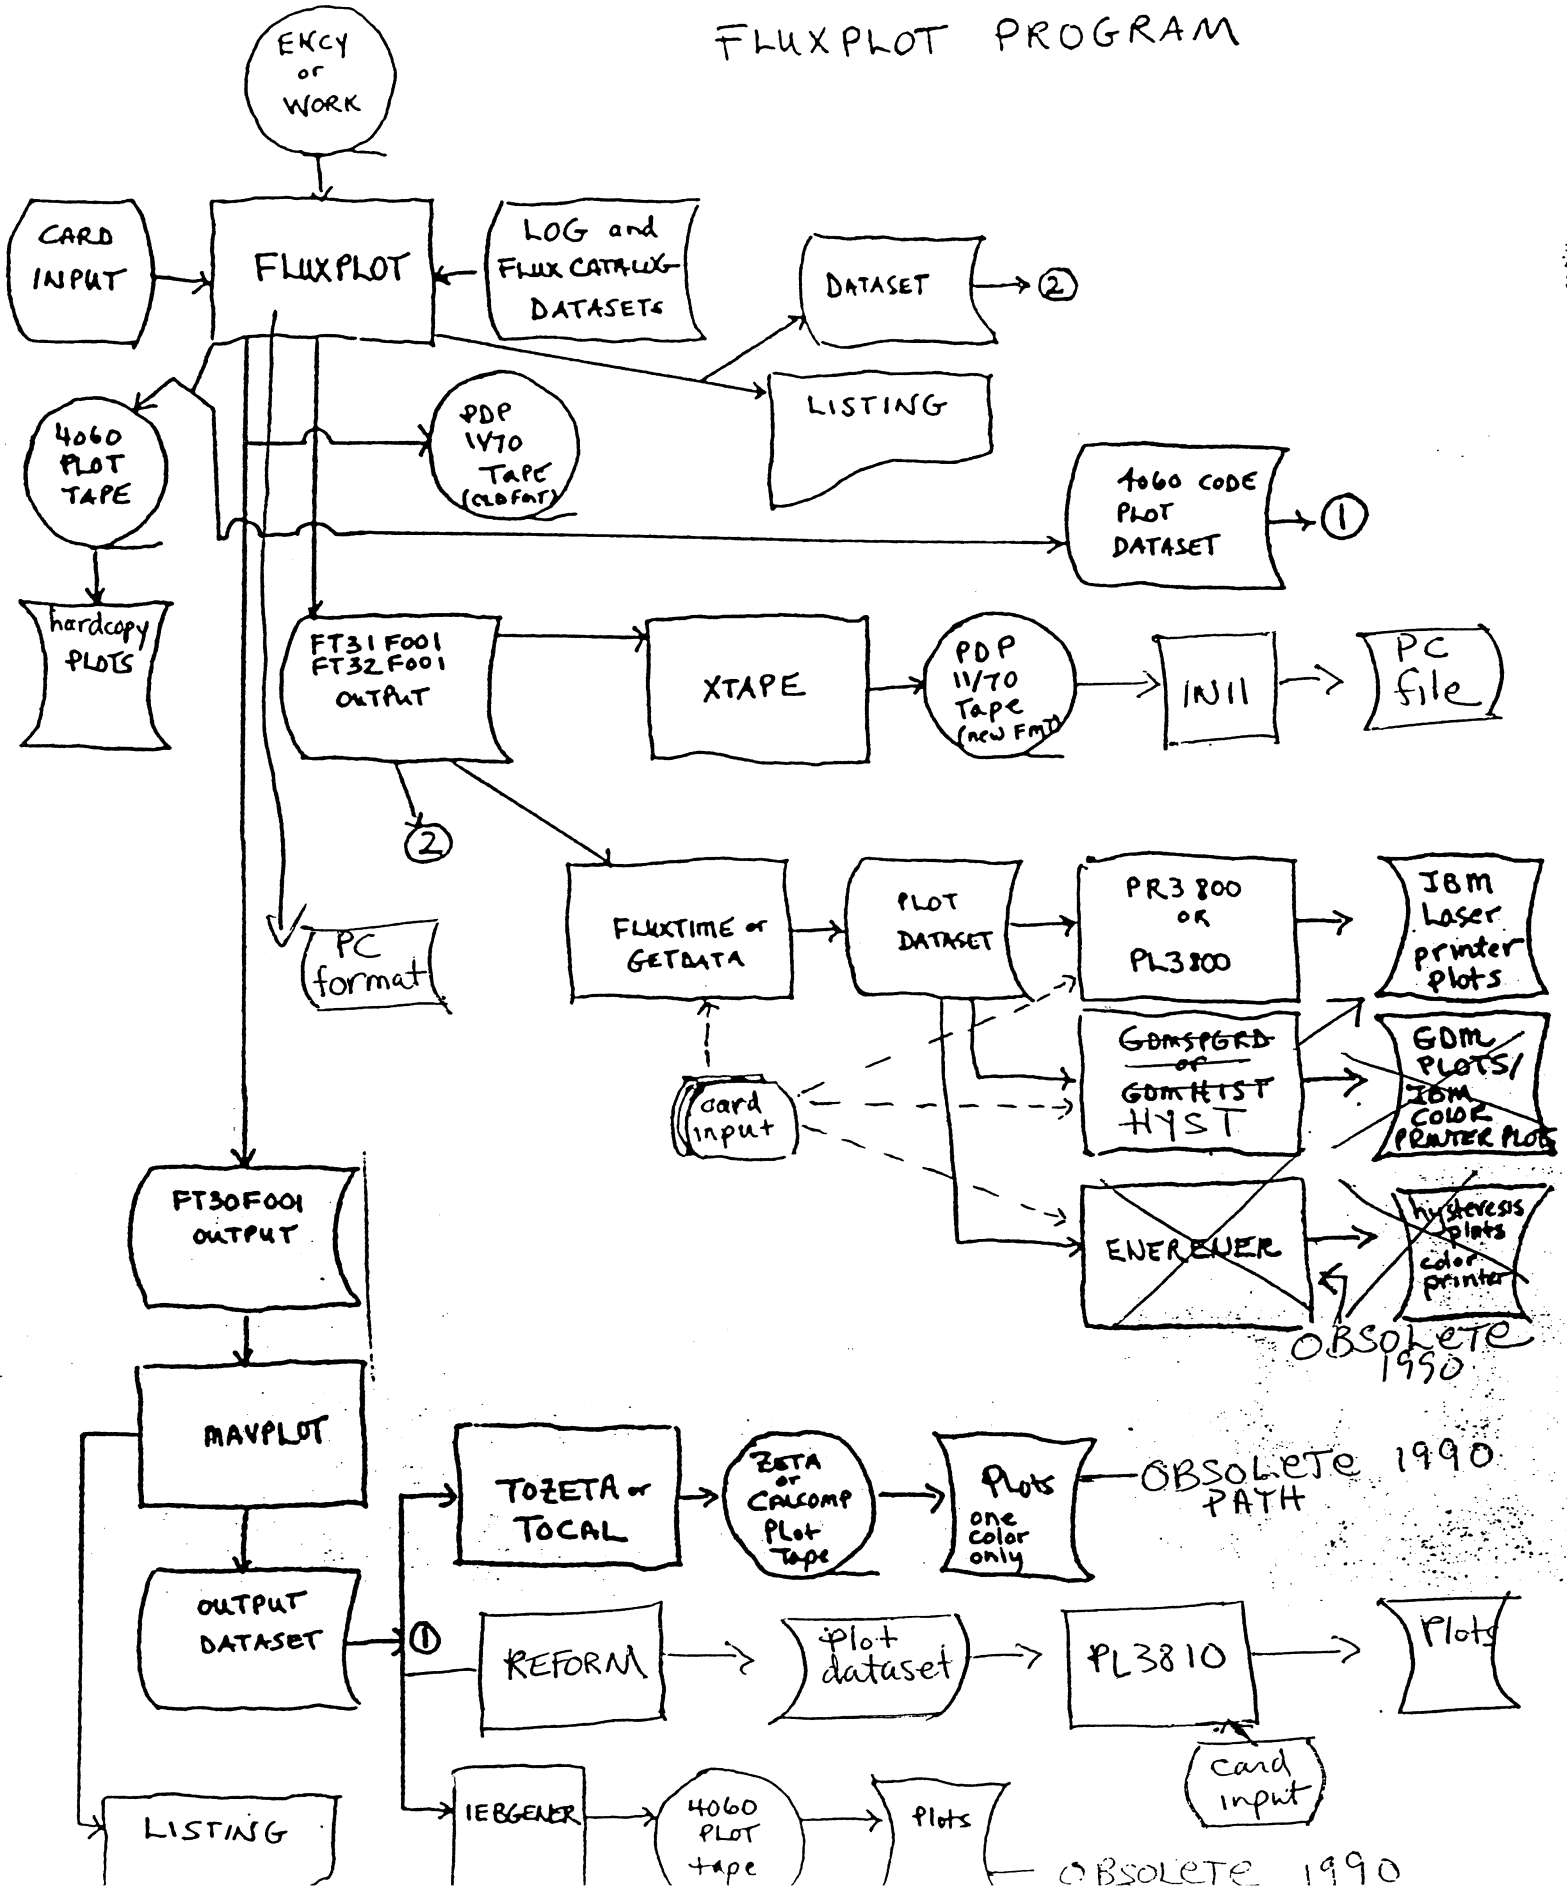 FLUXPLOT PROGRAM
ENCY
or
WORK
CARD
INPUT
FLUXPLOT
LOG and
FLUX CATALOG
DATASETS
DATASET
2
LISTING
4060
PLOT
TAPE
hardcopy
PLOTS
PDP
11/70
TAPE
(OLD FMT)
4060 CODE
PLOT
DATASET
1
FT31F001
FT32F001
OUTPUT
XTAPE
PDP
11/70
Tape
(new FMT)
IN11
PC
file
2
PC
format
FLUXTIME or
GETDATA
PLOT
DATASET
PR3800
OR
PL3800
IBM
Laser
printer
plots
card
input
GDMSPGRD
or
GDMHIST
HYST
GDM
PLOTS/
IBM
COLOR
PRINTER PLOTS
ENERENER
hysteresis
plots
color
printer
OBSOLETE
1990
FT30F001
OUTPUT
MAVPLOT
OUTPUT
DATASET
1
LISTING
TOZETA or
TOCAL
ZETA
or
CALCOMP
PLOT
Tape
Plots
one
color
only
OBSOLETE 1990
PATH
REFORM
plot
dataset
PL3810
Plots
card
input
IEBGENER
4060
PLOT
tape
Plots
OBSOLETE 1990